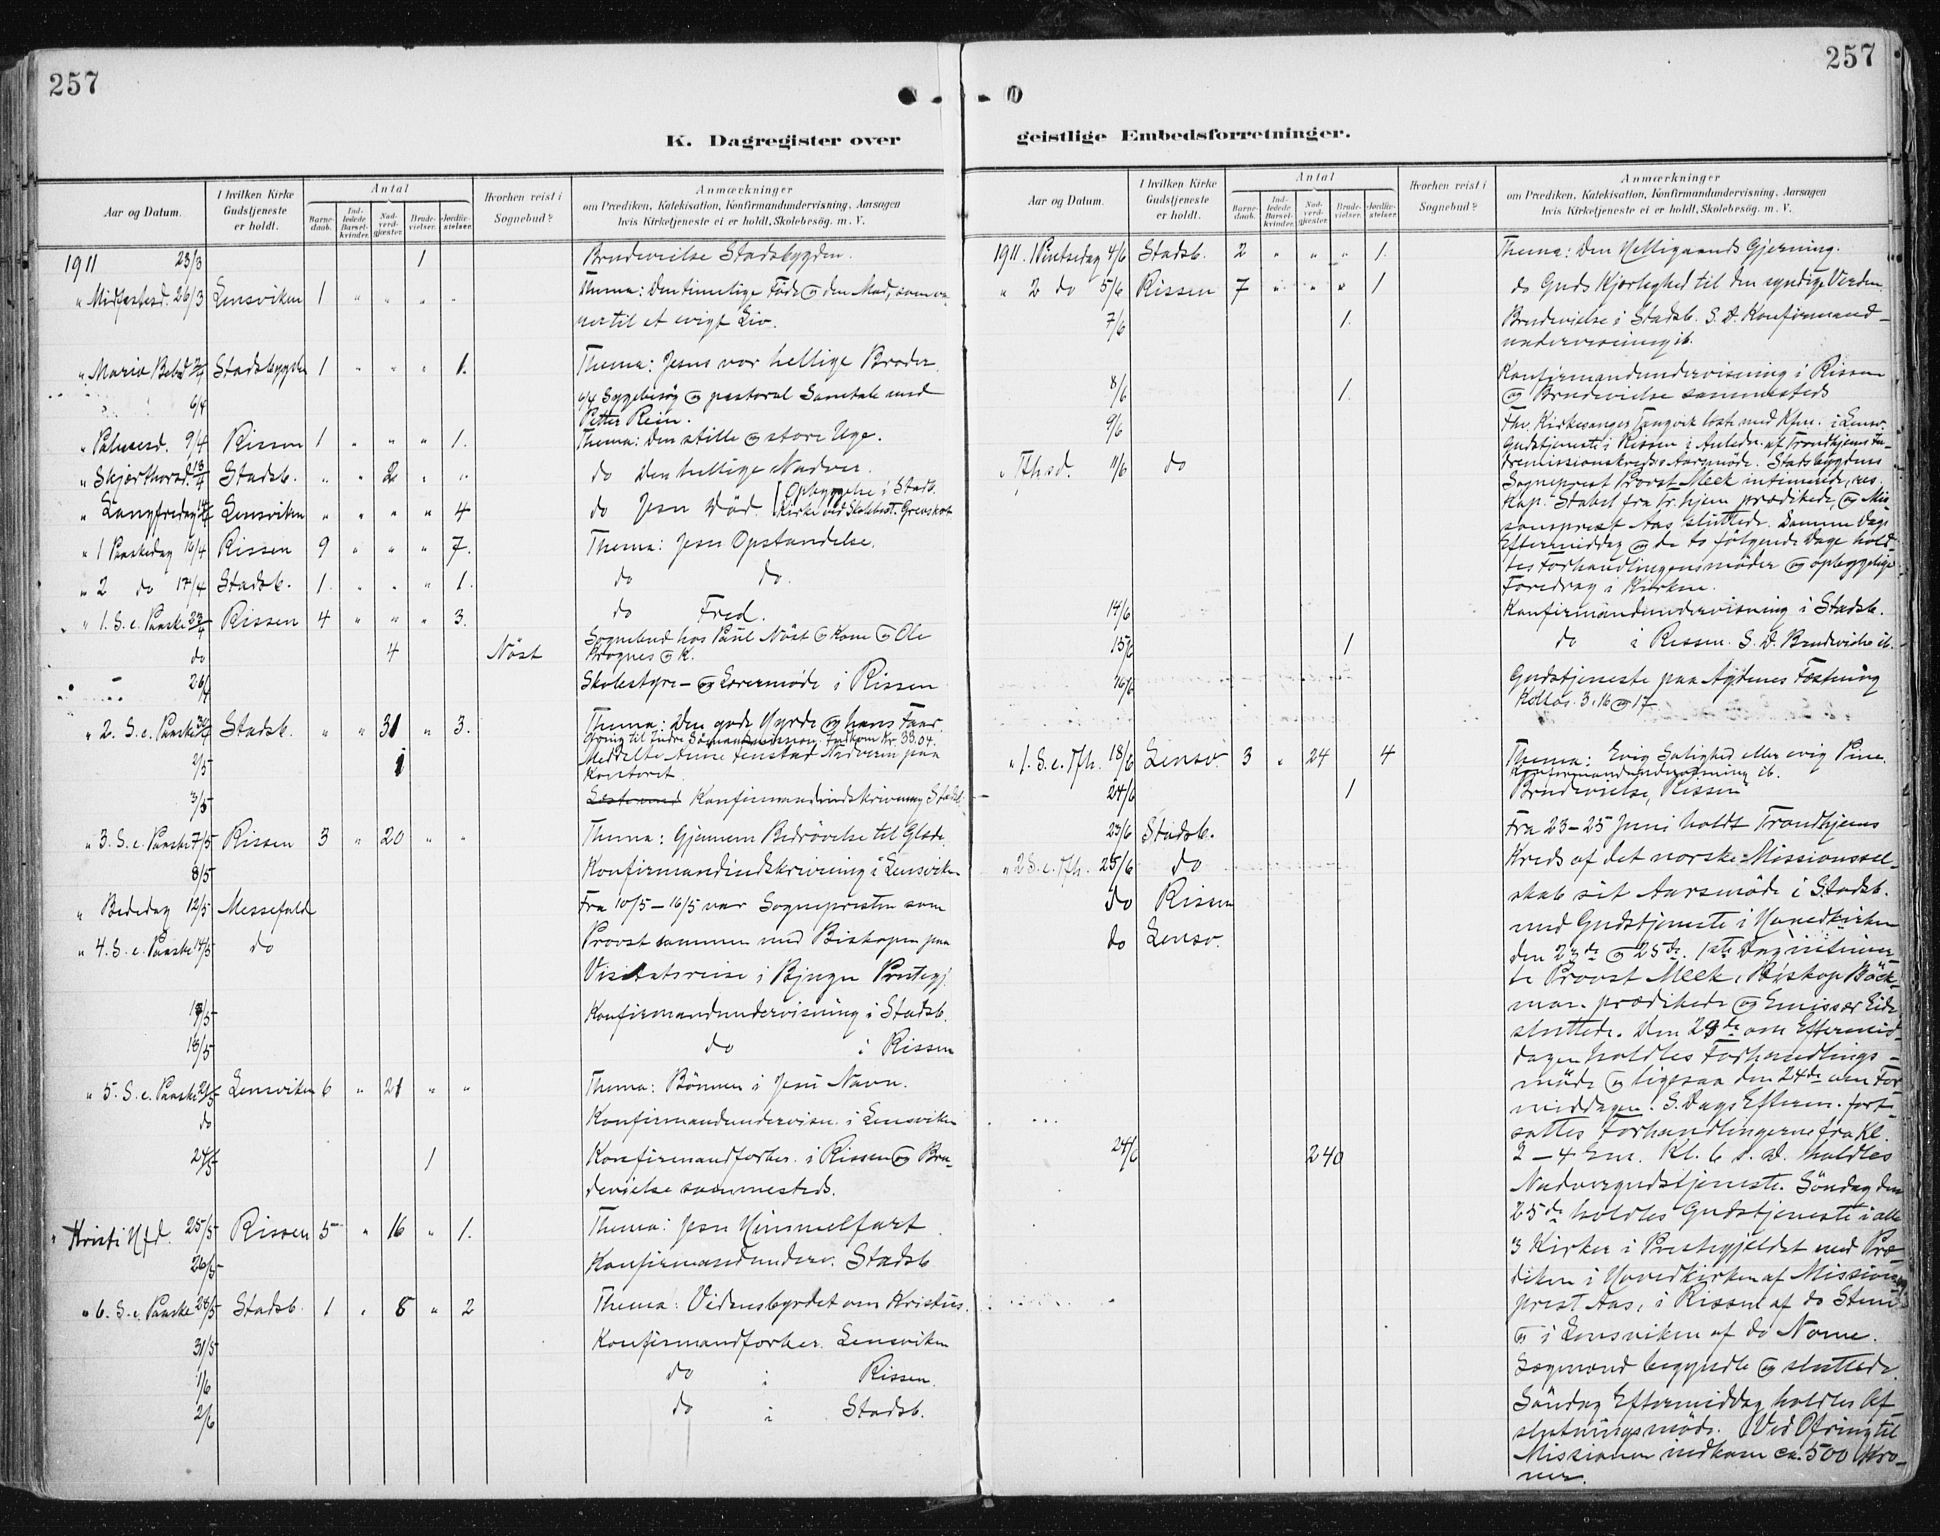 257
K. Dagregister over
Aar og Datum.
I hvilken Kirke Gudstjeneste er holdt.
Antal
Barnedaab.
Indledede Barselkvinder.
Nadverdgjæster.
Brudevielser.
Jordfæstelser.
Hvorhen reist i Sognebud?
Anmærkninger
om Prædiken, Katekisation, Konfirmandundervisning, Aarsagen
hvis Kirketjeneste ei er holdt, Skolebesøg. m. V.
1911 23/3 1 Brudevielse Stadsbygden.
" Midfastesd. 26/3 Lensviken 1 " " " " Thema: Den timelige Føde og den Mad, som va-
rer til et evigt Liv.
" Mariæ Bebd 2/4 Stadsbygden 1 " " " 1. Thema: Jesus vor hellige Broder.
6/4 6/4 Sygebesøg og pastoral Samtale med
Petter Rein.
" Palmesd. 9/4 Rissen 1 " " " 1. Thema: Den stille og store Uge.
" Skjærthorsd. 13/4 Stadsb. " " 2 " " do Den hellige Nadver.
" Langfredag 14/4 Lensviken " " " " 4 do Jesu Død. [Opbyggelse i Stads.
Kirke ved Skolebest. Grønskot
" 1 Paaskedag 16/4 Rissen 9 " " " 7. Thema: Jesu Opstandelse.
" 2 do 17/4 Stadsb. 1. " " " 1. do do.
" 1. S. e. Paaske 23/4 Rissen 4 " " " 3. do Fred.
do 4 Nøst Sognebud hos Paul Nøst og Kone og Ole
Brognes og K.
26/4 Skolestyre- og Lærermøde i Rissen
" 2. S. e. Paaske 30/4 Stadsb. " " 31 " 3. Thema: Den gode Hyrde og hans Faar.
Ofring til Indre Sømandsmission. Indkom Kr. 33.04.
2/5 1 Meddelte Anne Fenstad Nadveren paa
Kontoret.
3/5 Konfirmandindskrivning Stadsb.
" 3. S. e. Paaske 7/5 Rissen 3 " 20 " " Thema: Gjennem Bedrøvelse til Glæde.
8/5 Konfirmandindskrivning i Lensviken
" Bededag 12/5 Messefald Fra 10/5 - 16/5 var Sognepresten som
" 4. S. e. Paaske 14/5 do Provst sammen med Biskopen paa
Visitatsreise i Bjugn Prestegj.
Konfirmandundervisning i Stadsb.
18/5 do i Rissen
" 5. S. e. Paaske 21/5 Lensviken 6 " 21 " " Thema: Bønnen i Jesu Navn.
do Konfirmandundervisn. i Lensviken
24/5 1 Konfirmandforber. i Rissen og Bru-
devielse sammesteds.
" Kristi Hfd. 25/5 Rissen 5 " 16 " 1. Thema: Jesu Himmelfart
26/5 Konfirmandunderv. Stadsb
" 6. S. e. Paaske 28/5 Stadsb. 1 " 8 " 2 Thema: Vidnesbyrdet om Kristus.
31/5 Konfirmandforber. Lensviken
1/6 do i Rissen.
2/6 do i Stadsb.
257
geistlige Embedsforretninger.
Aar og Datum.
I hvilken Kirke Gudstjeneste er holdt.
Antal
Barnedaab.
Indledede Barselkvinder.
Nadverdgjæster.
Brudevielser.
Jordfæstelser.
Hvorhen reist i Sognebud?
Anmærkninger
om Prædiken, Katekisation, Konfirmandundervisning, Aarsagen
hvis Kirketjeneste ei er holdt, Skolebesøg. m. V.
1911. 1 Pintsedag 4/6 Stadsb. 2 " " " 1. Thema: Den Helligaands Gjerning.
" 2 do 5/6 Rissen 7 " " " 1 do Guds Kjærlighed til den syndige Verden
7/6 1. Brudevielse i Stadsb. S. D. Konfirmand-
undervisning ib.
8/6 1. Konfirmandundervisning i Rissen
og Brudevielse sammesteds
9/6 Fhv. Kirkesanger Tangvik læste med Kfm. i Lensv.
" Tfhsd. 11/6 do Gudstjeneste i Rissen i Anledn. af Trondhjems In-
dremissionskreds's Aarsmøde. Stadsbygdens
Sogneprest Provst Meek intimerede, res.
Kap. Stabel fra Tr.hjem prædikede, og Mis-
sionsprest Aas sluttede. Samme Dags
Eftermiddag og de to følgende Dage hold-
tes Forhandlingensmøder og opbyggelige
Foredrag i Kirken.
14/6 Konfirmandundervisning i Stadsb.
15/6 1 do i Rissen. S. D. Brudevielse ib.
16/6 Gudstjeneste paa Agdenes Fæstning
Kollos. 3, 16 og 17
" 1. S. e. Tfh. 18/6 Lensv. 3 " 24 4 Thema: Evig Salighed eller evig Pine.
Konfirmandundervisning ib.
24/6 1 Brudevielse, Rissen
23/6 Stadsb. Fra 23-25 Juni holdt Trondhjems
" 2 S. e. Tfh. 25/6 do Kreds af det norske Missionssel-
do Rissen skab sit Aarsmøde i Stadsb.
do Lensv. med Gudstjeneste i Hovedkirken
den 23de og 25de. 1ste Dag intimer-
te Provst Meek, Biskop Bøck-
man prædikede og Emissær Eide
sluttede. Den 23de om Eftermid-
dagen holdtes Forhandlings-
møde og ligesaa den 24de om For-
middagen. S. Dags Efterm. fort-
sattes Forhandlingerne fra Kl.
24/6 240 2-4 Em. Kl. 6 s. D. holdtes
Nadvergudstjeneste. Søndag den
25de holdtes Gudstjeneste i alle
3 Kirker i Prestegjeldet med Præ-
diken i Hovedkirken af Missions-
prest Aas, i Rissen af do
og i Lensviken af do Nome.
begyndte og sluttede.
Søndag Eftermiddag holdtes Af-
slutningsmøde. Ved Ofring til
Missionen indkom ca. 500 Kro-
ner.